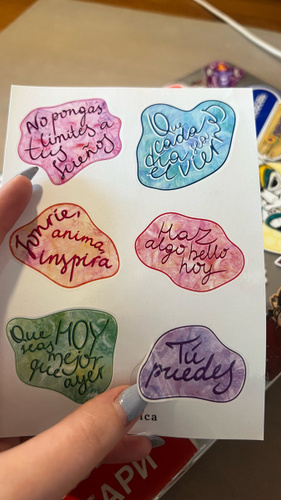 No pongas
límites a
tus
sueños
cada
día
el
Sonríe,
anima,
inspira
Haz
algo bello
hoy
Que HOY
seas
mejor
que
ayer
Tú
puedes
ica
АРИ